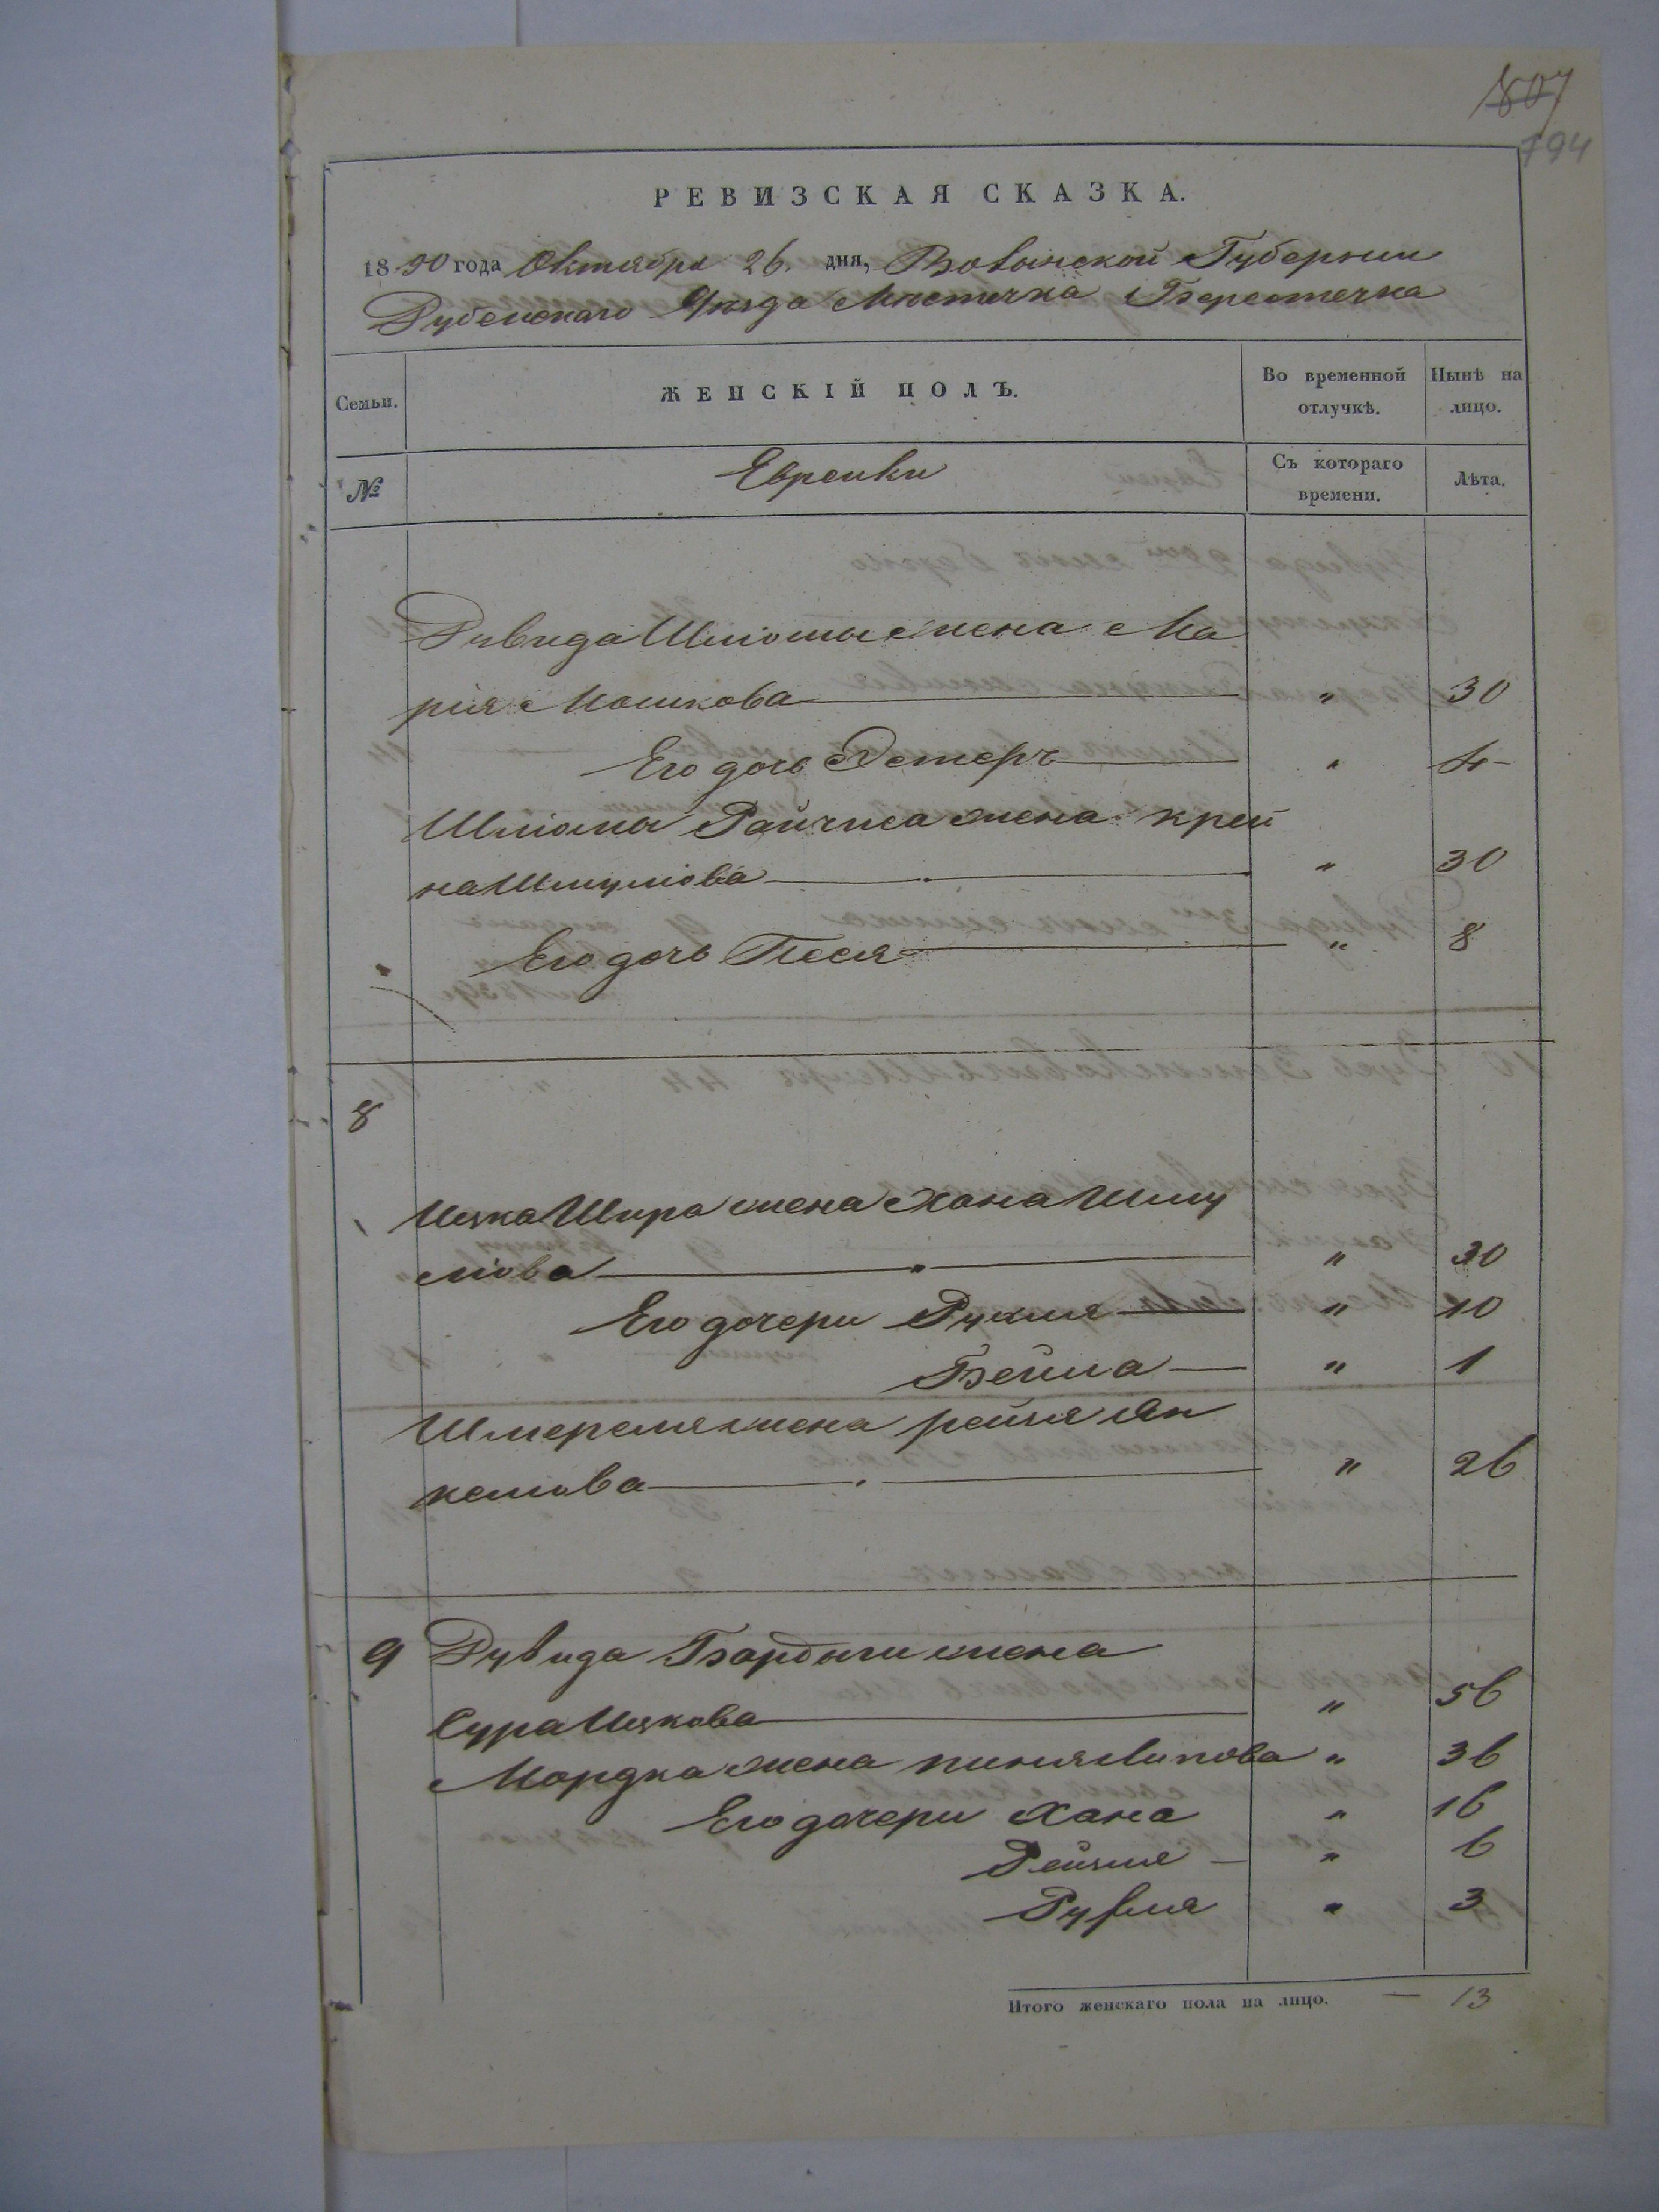 807
194
РЕВИЗСКАЯ СКАЗКА.
1850 года Октября 26. дня, Волынской Губернии
Дубенскаго Уезда Местечка Берестечка
Семьи.
ЖЕНСКІЙ ПОЛЪ.
Во временной отлучкѣ.
Нынѣ на лицо.
№
Еврейки
Съ котораго времени.
Лѣта.
Рувида Шліомы жена Ма
рія Мошкова " 30
Его дочь Эстеръ " 4
Шліомы жена Крей
на Шмулиова " 30
Его дочь Песя " 8
8
Ицка Шира жена Хана Шму
лиова " 30
Его дочери Рухля " 10
Бейла " 1
Шмереля жена Рейзя Ян
келиова " 26
9 Рувида жена
Сура Ицкова " 56
Мордка жена Пиня Липова " 36
Его дочери Хана " 16
Рейзля " 6
" 3
Итого женскаго пола на лицо. — 13